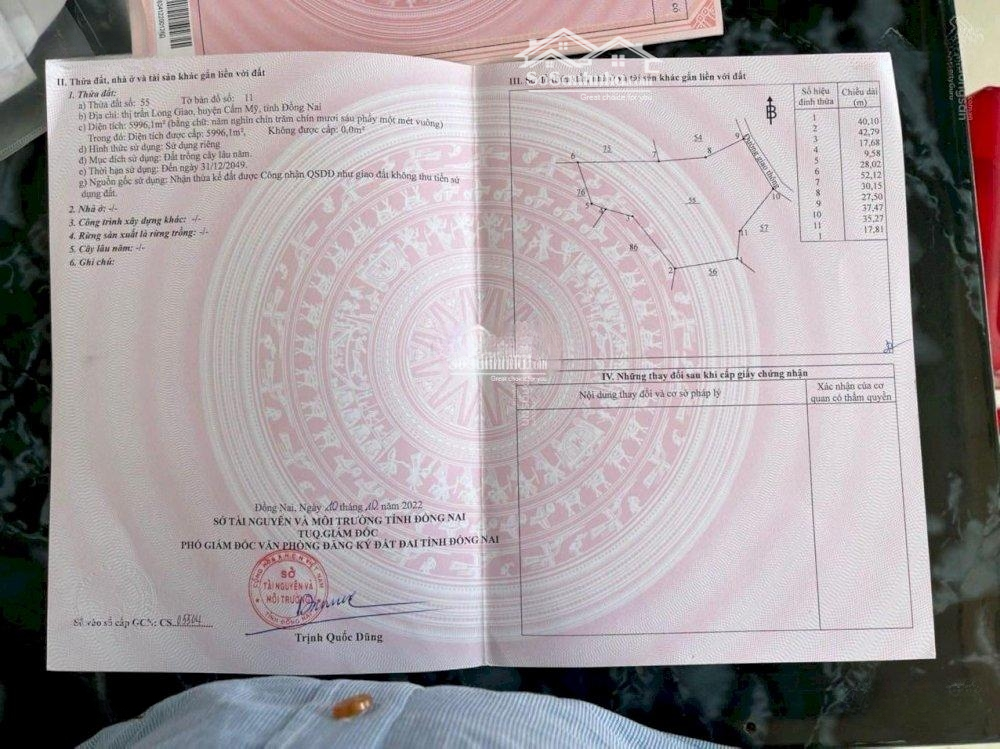 II. Thửa đất, nhà ở và tài sản khác gắn liền với đất
1. Thửa đất:
a) Thửa đất số: 55 Tờ bản đồ số: 11
b) Địa chỉ: thị trấn Long Giao, huyện Cẩm Mỹ, tỉnh Đồng Nai
c) Diện tích: 5996,1m² (bằng chữ: năm nghìn chín trăm chín mươi sáu phẩy một mét vuông)
Trong đó: Diện tích được cấp: 5996,1m², Không được cấp: 0,0m²
d) Hình thức sử dụng: Sử dụng riêng
đ) Mục đích sử dụng: Đất trồng cây lâu năm.
e) Thời hạn sử dụng: Đến ngày 31/12/2049.
g) Nguồn gốc sử dụng: Nhận thừa kế đất được Công nhận QSDĐ như giao đất không thu tiền sử
dụng đất.
2. Nhà ở: -/-
3. Công trình xây dựng khác: -/-
4. Rừng sản xuất là rừng trồng: -/-
5. Cây lâu năm: -/-
6. Ghi chú:
Đồng Nai, Ngày 10 tháng 10 năm 2022
SỞ TÀI NGUYÊN VÀ MÔI TRƯỜNG TỈNH ĐỒNG NAI
TUQ.GIÁM ĐỐC
PHÓ GIÁM ĐỐC VĂN PHÒNG ĐĂNG KÝ ĐẤT ĐAI TỈNH ĐỒNG NAI
SỞ
TÀI NGUYÊN VÀ
MÔI TRƯỜNG
TỈNH ĐỒNG NAI
Trịnh Quốc Dũng
Số vào sổ cấp GCN: CS
III. và tài sản khác gắn liền với đất
B
Số hiệu đỉnh thửa Chiều dài (m)
1
40,10
2
42,79
3
17,68
4
9,58
5
28,02
6
52,12
7
30,15
8
27,50
9
37,47
10
35,27
11
17,81
1
Đường giao thông
54
75
9
8
7
6
76
5
4
3
55
10
86
11
57
2
56
1
IV. Những thay đổi sau khi cấp giấy chứng nhận
Nội dung thay đổi và cơ sở pháp lý
Xác nhận của cơ
quan có thẩm quyền
Great choice for you